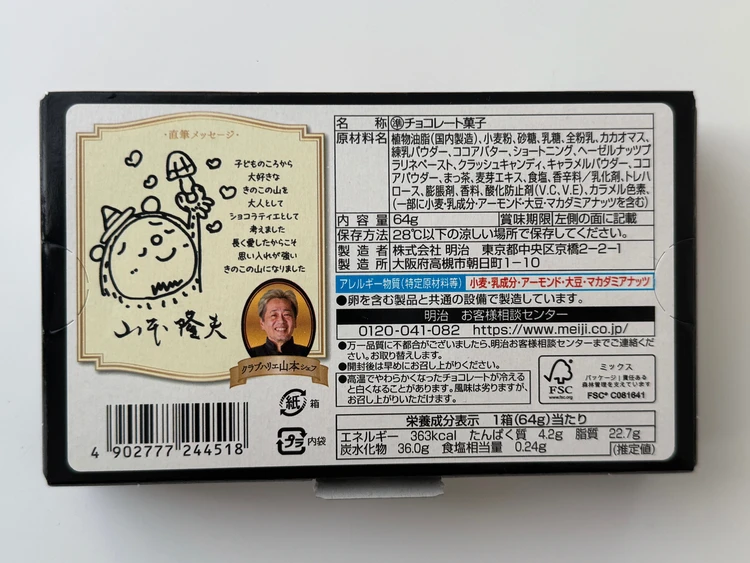 ・直筆メッセージ・
子どものころから
大好きな
きのこの山を
大人として
ショコラティエとして
考えました
長く愛したからこそ
思い入れが強い
きのこの山になりました
山本隆夫
クラブハリエ山本シェフ
4 902777 244518
紙 箱
プラ 内袋
名 称 準チョコレート菓子
原材料名 植物油脂(国内製造)、小麦粉、砂糖、乳糖、全粉乳、カカオマス、
練乳パウダー、ココアバター、ショートニング、ヘーゼルナッツプ
ラリネペースト、クラッシュキャンディ、キャラメルパウダー、ココ
アパウダー、まっ茶、麦芽エキス、食塩、香辛料／乳化剤、トレハ
ロース、膨脹剤、香料、酸化防止剤(V.C、V.E)、カラメル色素、
(一部に小麦・乳成分・アーモンド・大豆・マカダミアナッツを含む)
内 容 量 64g 賞味期限 左側の面に記載
保存方法 28℃以下の涼しい場所で保存してください。
製 造 者 株式会社 明治 東京都中央区京橋2-2-1
製 造 所 大阪府高槻市朝日町1-10
アレルギー物質(特定原材料等) 小麦・乳成分・アーモンド・大豆・マカダミアナッツ
●卵を含む製品と共通の設備で製造しています。
明治 お客様相談センター
0120-041-082 https://www.meiji.co.jp/
●万一品質に不都合がございましたら、明治お客様相談センターまでご連絡くだ
さい。お取り替えします。
●開封後は早めにお召し上がりください。
●高温でやわらかくなったチョコレートが冷える
と白くなることがあります。風味は劣りますが、
お召し上がりいただけます。
FSC
www.fsc.org
ミックス
パッケージ｜責任ある
森林管理を支えています
FSC® C081641
栄養成分表示 1箱(64g)当たり
エネルギー 363kcal たんぱく質 4.2g 脂質 22.7g
炭水化物 36.0g 食塩相当量 0.24g (推定値)